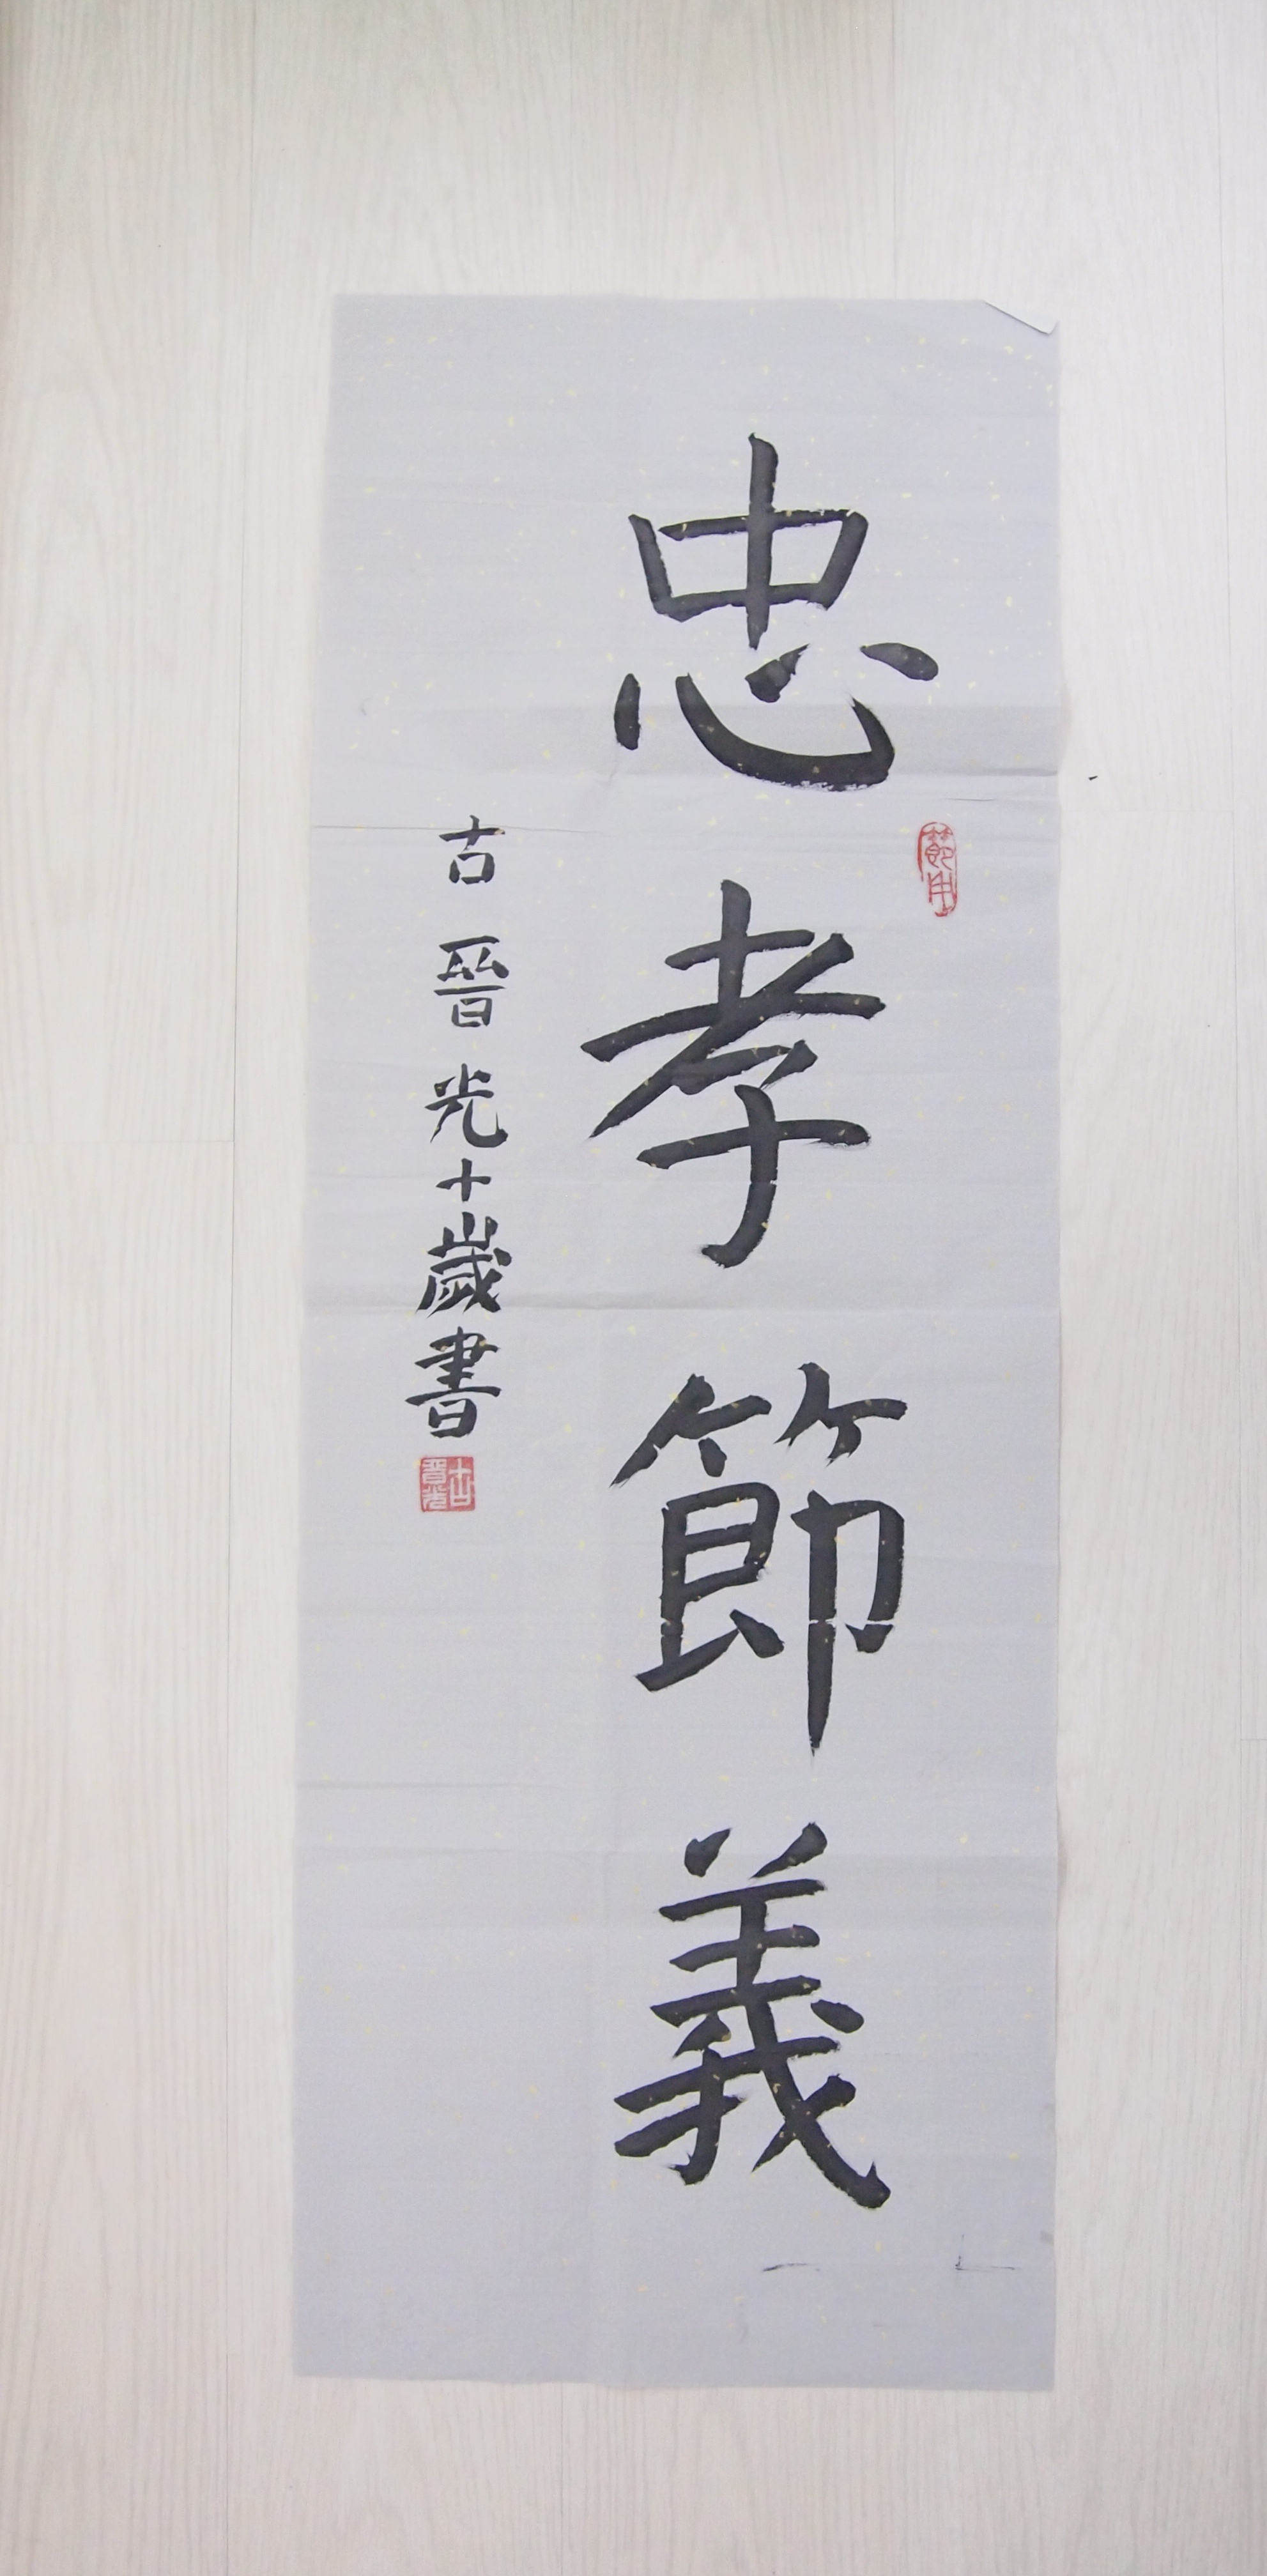 忠孝節義
古晉光十歲書
古晉光